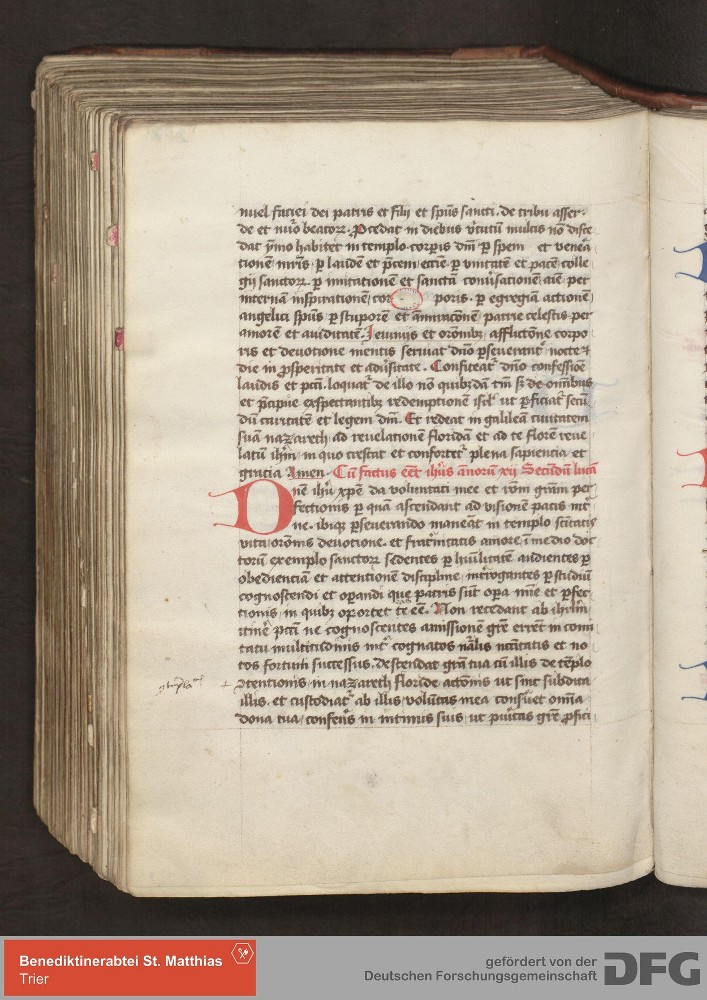 nuel faciei dei patris et filij et spūs sancti. de tribu asser.
de et nūo beatorꝝ. Ꝓcedat in diebus v̓tutū multis nō disce
dat ymo habitet in templo corꝑis dīni ꝑ spem et venera
tionē mr̄is ꝑ laudem et p̄cem eccīe ꝑ vnitatē et pacē colle
gij sanctorꝝ. ꝑ imitationē et sanctā conūsationē aīe per
internā inspirationē cor poris. ꝑ egregiā actionē
angelici spūs ꝑ stuporē et āmiracōnē patrie celestis per
amorē et auiditatē. Ieiunijs et orōnibꝫ afflictōne corpo
ris et deuotione mentis seruiat dn̄o ꝑseuerant̓ nocte ⁊
die in ꝓsperitate et adūsitate. Confiteat̓ dn̄o confessionē
laudis et pctī. loquat̓ de illo nō quibꝫdā tm̄ sꝫ de om̄ibus
et p̄cipue exspectantibꝫ redemptionē isrl̄ ut ꝑficiat̓ secū
dū caritatē et legem dīni. Et redeat in galileā ciuitatem
suā nazareth ad reuelationē floridā et ad te florē reue
latū ihm̄ in quo crescat et confortet̓ plena sapiencia et
gracia Amen. Cū factus eēt ihūs ānorū xij Secūdū lucā
Dn̄e ihū xp̄e da voluntati mee et rōni grām per
fectionis ꝑ quā ascendant ad visionē pacis int̓
ne. ibiqꝫ ꝑseuerando maneāt in templo sc̄itatis
vita orōnis deuotione. et frat̓nitatis amore ī medio doc
torū exemplo sanctorꝝ sedentes ꝑ hūilitatē audientes ꝑ
obedienciā et attentionē discipline int̓rogantes ꝑ studiū
cognoscendi et oꝑandi que patris sūt oꝑa mīe et ꝑfec
tionis in quibꝫ oportet te eē. Non recedant ab ihrlm̄
itinē pctī ne cognoscentes amissionē gr̄e errēt in comi
tatu multitudinis int̓ cognatos nālis nc̄itatis et no
tos fortuiti successus. Descendat grā tua cū illis de tēplo
ꝯtentionis in nazareth floride actōnis ut sint subdita
illis. et custodiat̓ ab illis volūtas mea conſuet omīa
dona tua confer̄s in intimis suis ut puritas gr̄e ꝓfici
Benediktinerabtei St. Matthias
Trier
gefördert von der
Deutschen Forschungsgemeinschaft
DFG